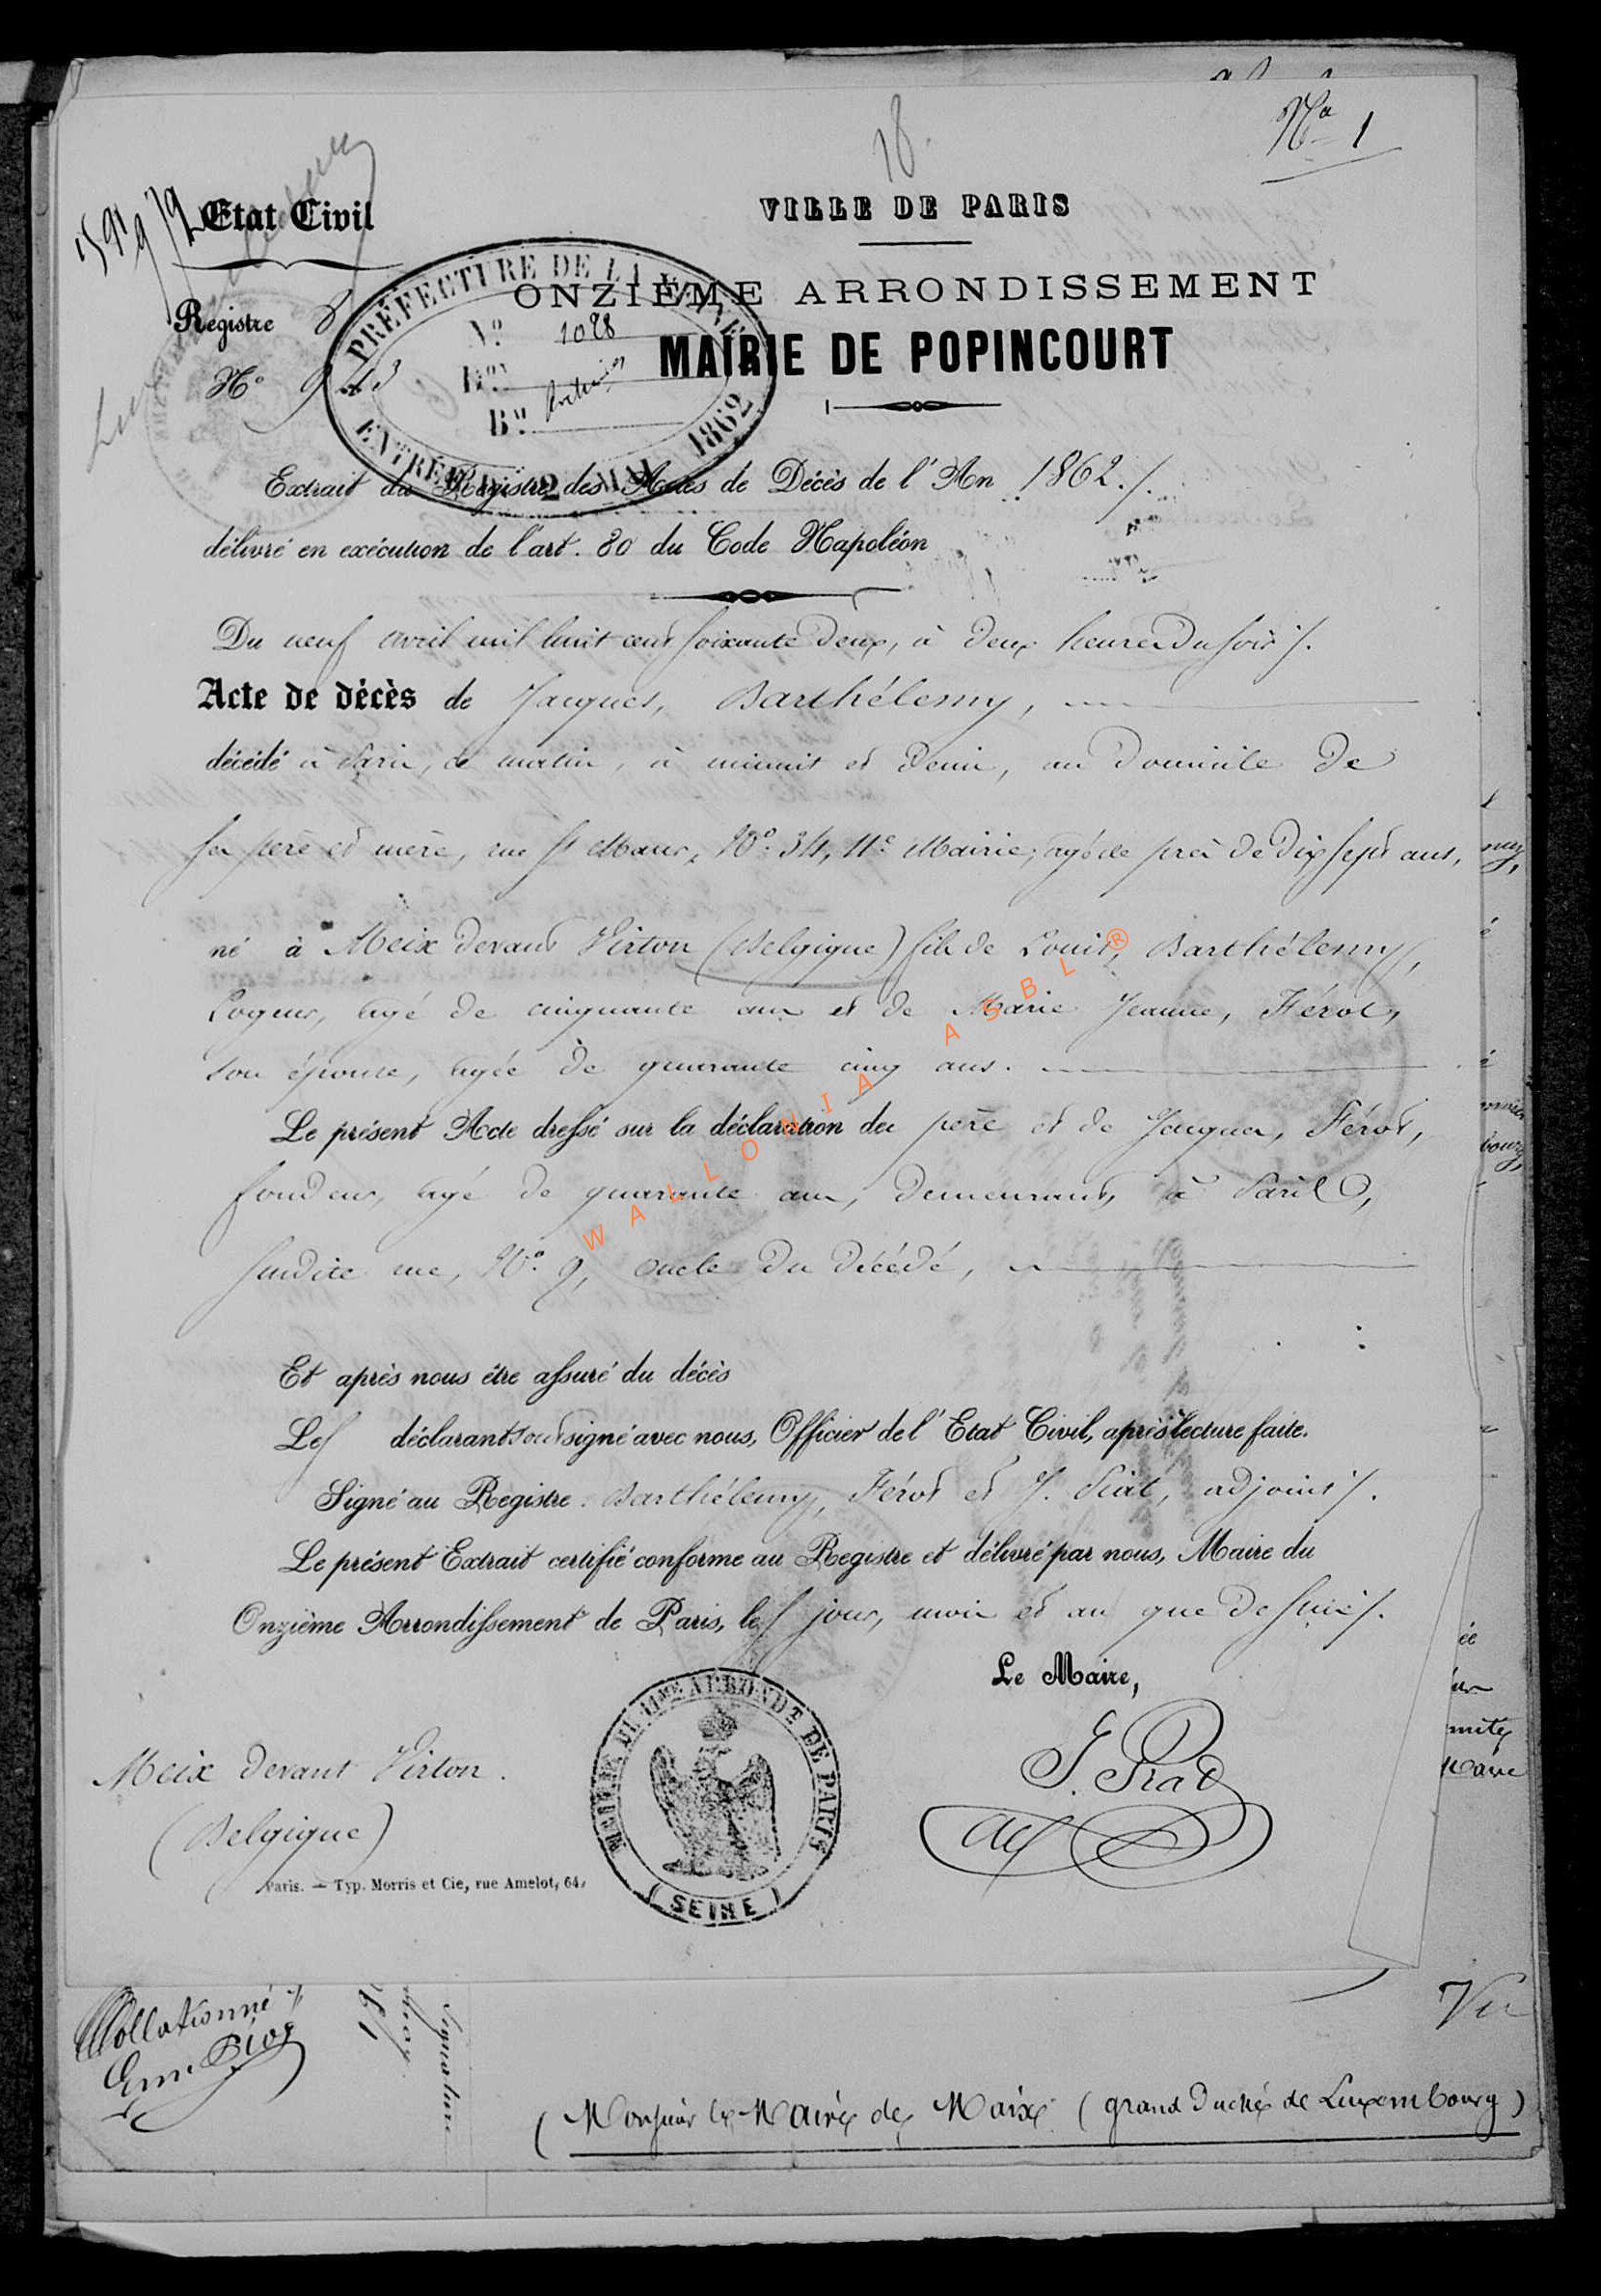 Nº 1
18.
Etat Civil
VILLE DE PARIS
ONZIÈME ARRONDISSEMENT
MAIRIE DE POPINCOURT
Registre 8
Nº 943
PRÉFECTURE DE LA SEINE
Nº 1028
Don
Bau
ENTRÉE 2 MAI 1862
Extrait du Registre des Actes de Décès de l'An 1862./.
délivré en exécution de l'art. 80 du Code Napoléon
Du neuf avril mil huit cent soixante deux, à deux heures du soir /.
Acte de décès de Jacques, Barthélemy,
décédé à Paris, ce matin, à minuit et demi, au domicile de
ses père et mère, rue St Maur, Nº 34, 11e Mairie, âgé de près de dix sept ans,
né à Meix devant Virton (Belgique) fils de Louis, Barthélemy,
Logeur, âgé de cinquante ans et de Marie Jeanne, Férot,
son épouse, âgée de quarante cinq ans.
Le présent Acte dressé sur la déclaration des père et de Jacques, Férot,
fondeur, âgé de quarante ans, demeurant, à Paris,
susdite rue, Nº 9, oncle du décédé,
Et après nous être assuré du décès
Les déclarants ont signé avec nous, Officier de l'Etat Civil, après lecture faite.
Signé au Registre : Barthélemy, Férot et J. Piat, adjoint /.
Le présent Extrait certifié conforme au Registre et délivré par nous, Maire du
Onzième Arrondissement de Paris, les jour, mois et an que dessus /.
Le Maire,
J. Piat
adj
MAIRIE DU 11me ARRONDT DE PARIS
(SEINE)
Meix devant Virton.
(Belgique)
Paris. — Typ. Morris et Cie, rue Amelot, 64.
WALLONIA ASBL ®
Collationné
Signature
Vu
(Monsieur le Maire de Maix (grand Duché de Luxembourg)